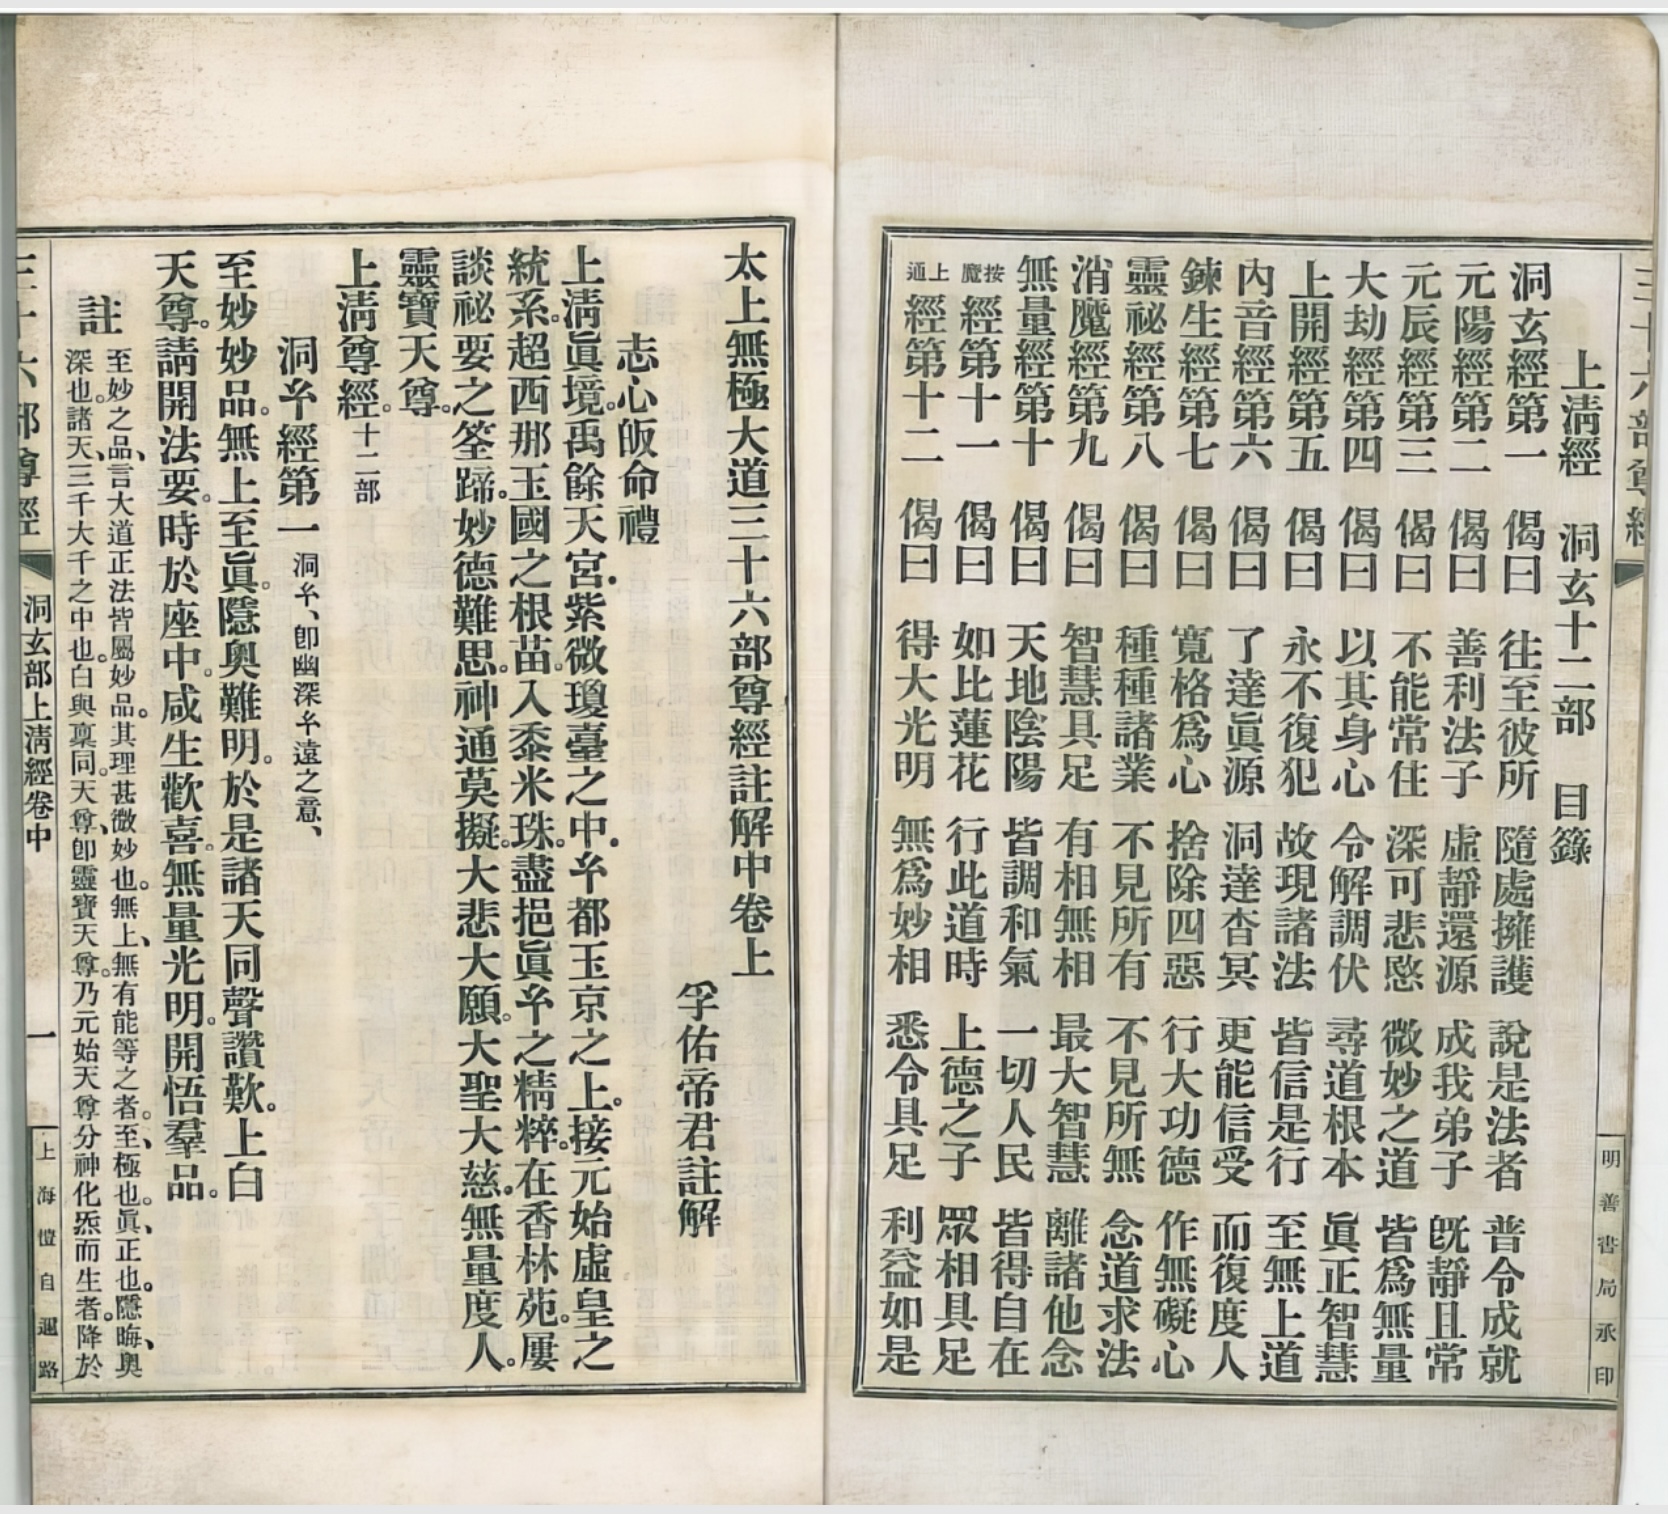 三十六部尊經
明善書局承印
上淸經 洞玄十二部 目錄
洞玄經第一 偈曰 往至彼所 隨處擁護 說是法者 普令成就
元陽經第二 偈曰 善利法子 虛靜還源 成我弟子 旣靜且常
元辰經第三 偈曰 不能常住 深可悲愍 微妙之道 皆爲無量
大劫經第四 偈曰 以其身心 令解調伏 尋道根本 眞正智慧
上開經第五 偈曰 永不復犯 故現諸法 皆信是行 至無上道
內音經第六 偈曰 了達眞源 洞達杳冥 更能信受 而復度人
鍊生經第七 偈曰 寬格爲心 捨除四惡 行大功德 作無礙心
靈祕經第八 偈曰 種種諸業 不見所有 不見所無 念道求法
消魔經第九 偈曰 智慧具足 有相無相 最大智慧 離諸他念
無量經第十 偈曰 天地陰陽 皆調和氣 一切人民 皆得自在
按魔經第十一 偈曰 如比蓮花 行此道時 上德之子 眾相具足
上通經第十二 偈曰 得大光明 無爲妙相 悉令具足 利益如是
太上無極大道三十六部尊經註解中卷上
孚佑帝君註解
志心皈命禮
上淸眞境。禹餘天宮．紫微瓊臺之中．𢆯都玉京之上。接元始虛皇之
統系。超西那玉國之根苗。入黍米珠。盡挹眞𢆯之精粹。在香林苑。屢
談祕要之筌蹄。妙德難思。神通莫擬。大悲大願。大聖大慈。無量度人。
靈寶天尊。
上淸尊經。十二部
洞𢆯經第一 洞𢆯、卽幽深𢆯遠之意、
至妙妙品。無上至眞。隱奧難明。於是諸天同聲讚歎。上白
天尊。請開法要。時於座中。咸生歡喜。無量光明。開悟羣品。
註 至妙之品、言大道正法皆屬妙品。其理甚微妙也。無上、無有能等之者。至、極也。眞、正也。隱晦、奧
深也。諸天、三千大千之中也。白與稟同。天尊、卽靈寶天尊。乃元始天尊分神化炁而生者。降於
三十六部尊經
洞玄部上淸經卷中
一
上海愷自邇路